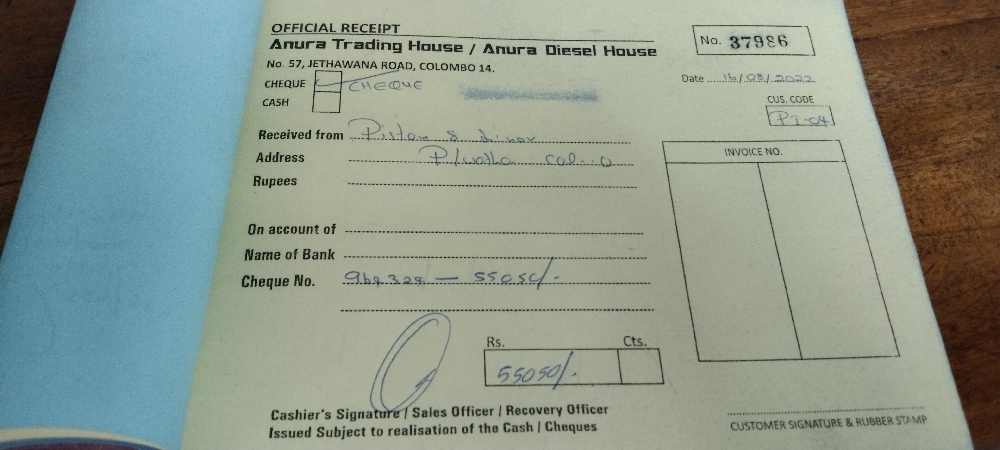 OFFICIAL RECEIPT
Anura Trading House / Anura Diesel House
No. 37986
No. 57, JETHAWANA ROAD, COLOMBO 14.
Date 16/05/2022
CHEQUE CHEQUE
CASH
CUS. CODE
PI-04
Received from
Address
INVOICE NO.
Rupees
On account of
Name of Bank
Cheque No. 55050/-
Rs. Cts.
55050/-
Cashier's Signature / Sales Officer / Recovery Officer
Issued Subject to realisation of the Cash / Cheques
CUSTOMER SIGNATURE & RUBBER STAMP